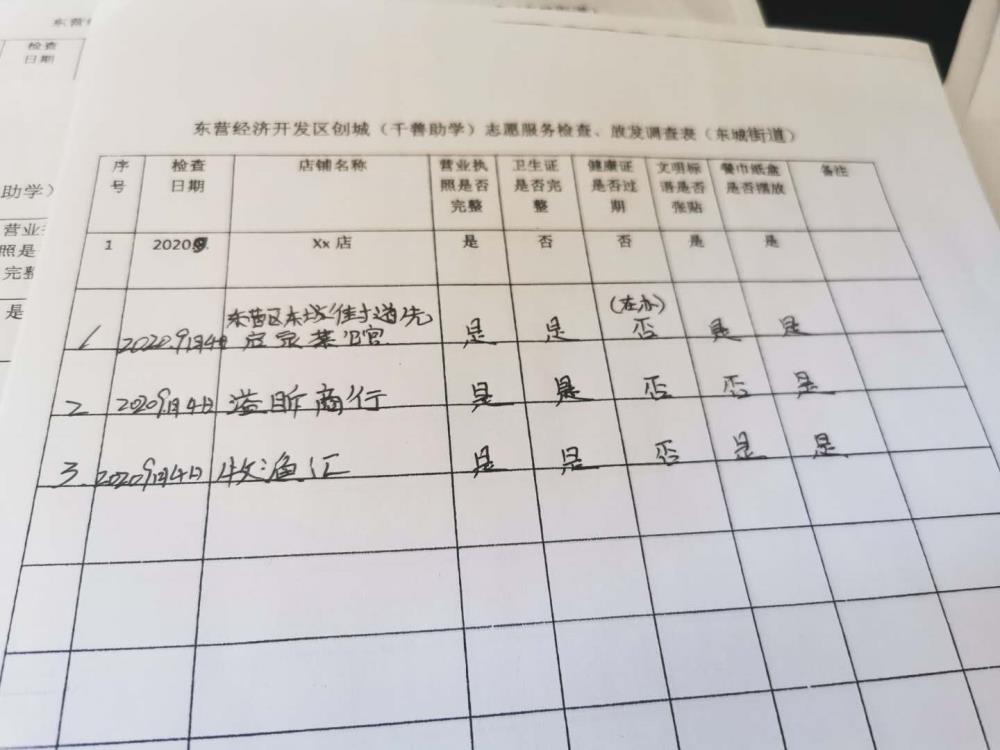 东营
检查
日期
助学）
营业
照是
完整
是
东营经济开发区创城（千善助学）志愿服务检查、放发调查表（东城街道）
序号 检查日期 店铺名称 营业执照是否完整 卫生证是否完整 健康证是否过期 文明标语是否张贴 餐巾纸盒是否摆放 备注
1 2020.9. Xx 店 是 否 否 是 是
1 2020.9月4日 东营区东城街道先 是 是 (在办) 否 是 是
2 20209月4日 溢昕商行 是 是 否 否 是
3 20209月4日 牧渔汇 是 是 否 是 是